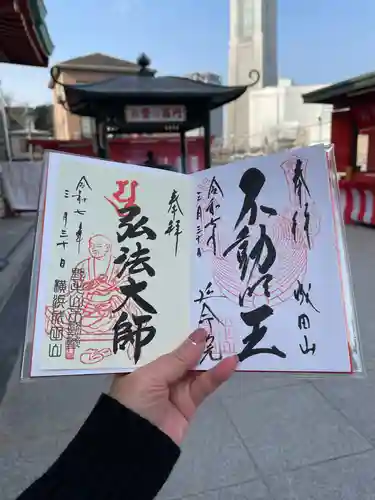 奉拝
不動明王
成田山
延命院
令和七年
三月三十日
奉拝
弘法大師
令和七年
三月三十日
横浜成田山